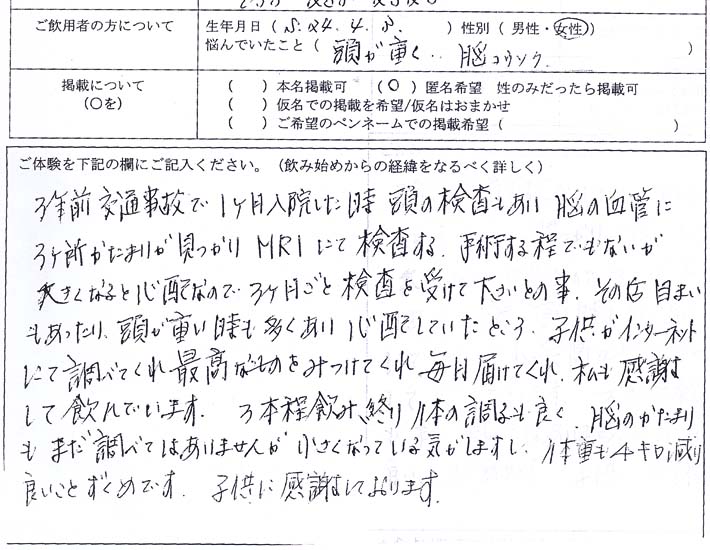 ご飲用者の方について
生年月日（S. 24. 4. 3.　）性別（ 男性・女性）
悩んでいたこと（ 頭が重く．．脳コウソク．）
掲載について
（〇を）
（　）本名掲載可　（〇）匿名希望　姓のみだったら掲載可
（　）仮名での掲載を希望/仮名はおまかせ
（　）ご希望のペンネームでの掲載希望（　）
ご体験を下記の欄にご記入ください。（飲み始めからの経緯をなるべく詳しく）
3年前 交通事故で 1ヶ月入院した時 頭の検査もあり 脳の血管に
3ヶ所かたまりが見つかり MRIにて検査する. 手術する程でもないが
大きくなると心配なので 3ヶ月ごと検査を受けて下さいとの事. その后 目まい
もあったり, 頭が重い時も多くあり 心配していたところ. 子供がインターネット
にて調べてくれ 最高なものをみつけてくれ 毎日届けてくれ, 私も感謝
して飲んでいます. 3本程飲み終り 体の調子も良く. 脳のかたまり
も まだ調べてはありませんが 小さくなっている気がしますし. 体重も4キロ減り
良いことずくめです. 子供に感謝しております.